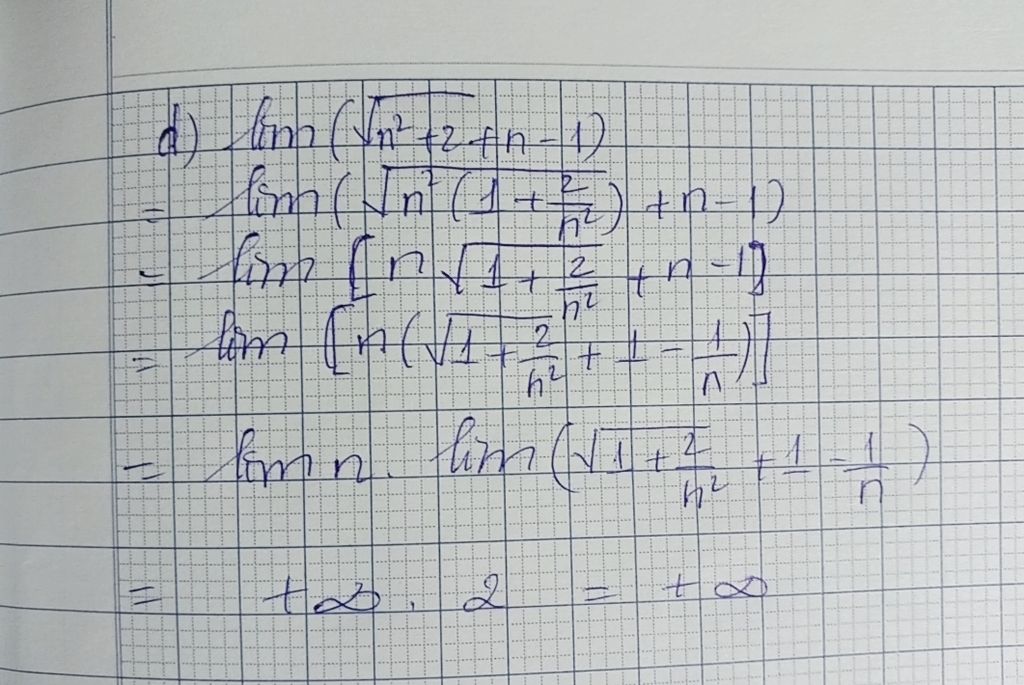 d) lim (√n² + 2 + n - 1)
= lim (√n² (1 + 2/n²) + n - 1)
= lim [n √1 + 2/n² + n - 1]
= lim [n (√1 + 2/n² + 1 - 1/n)]
= lim n . lim (√1 + 2/n² + 1 - 1/n)
= +∞ . 2 = +∞